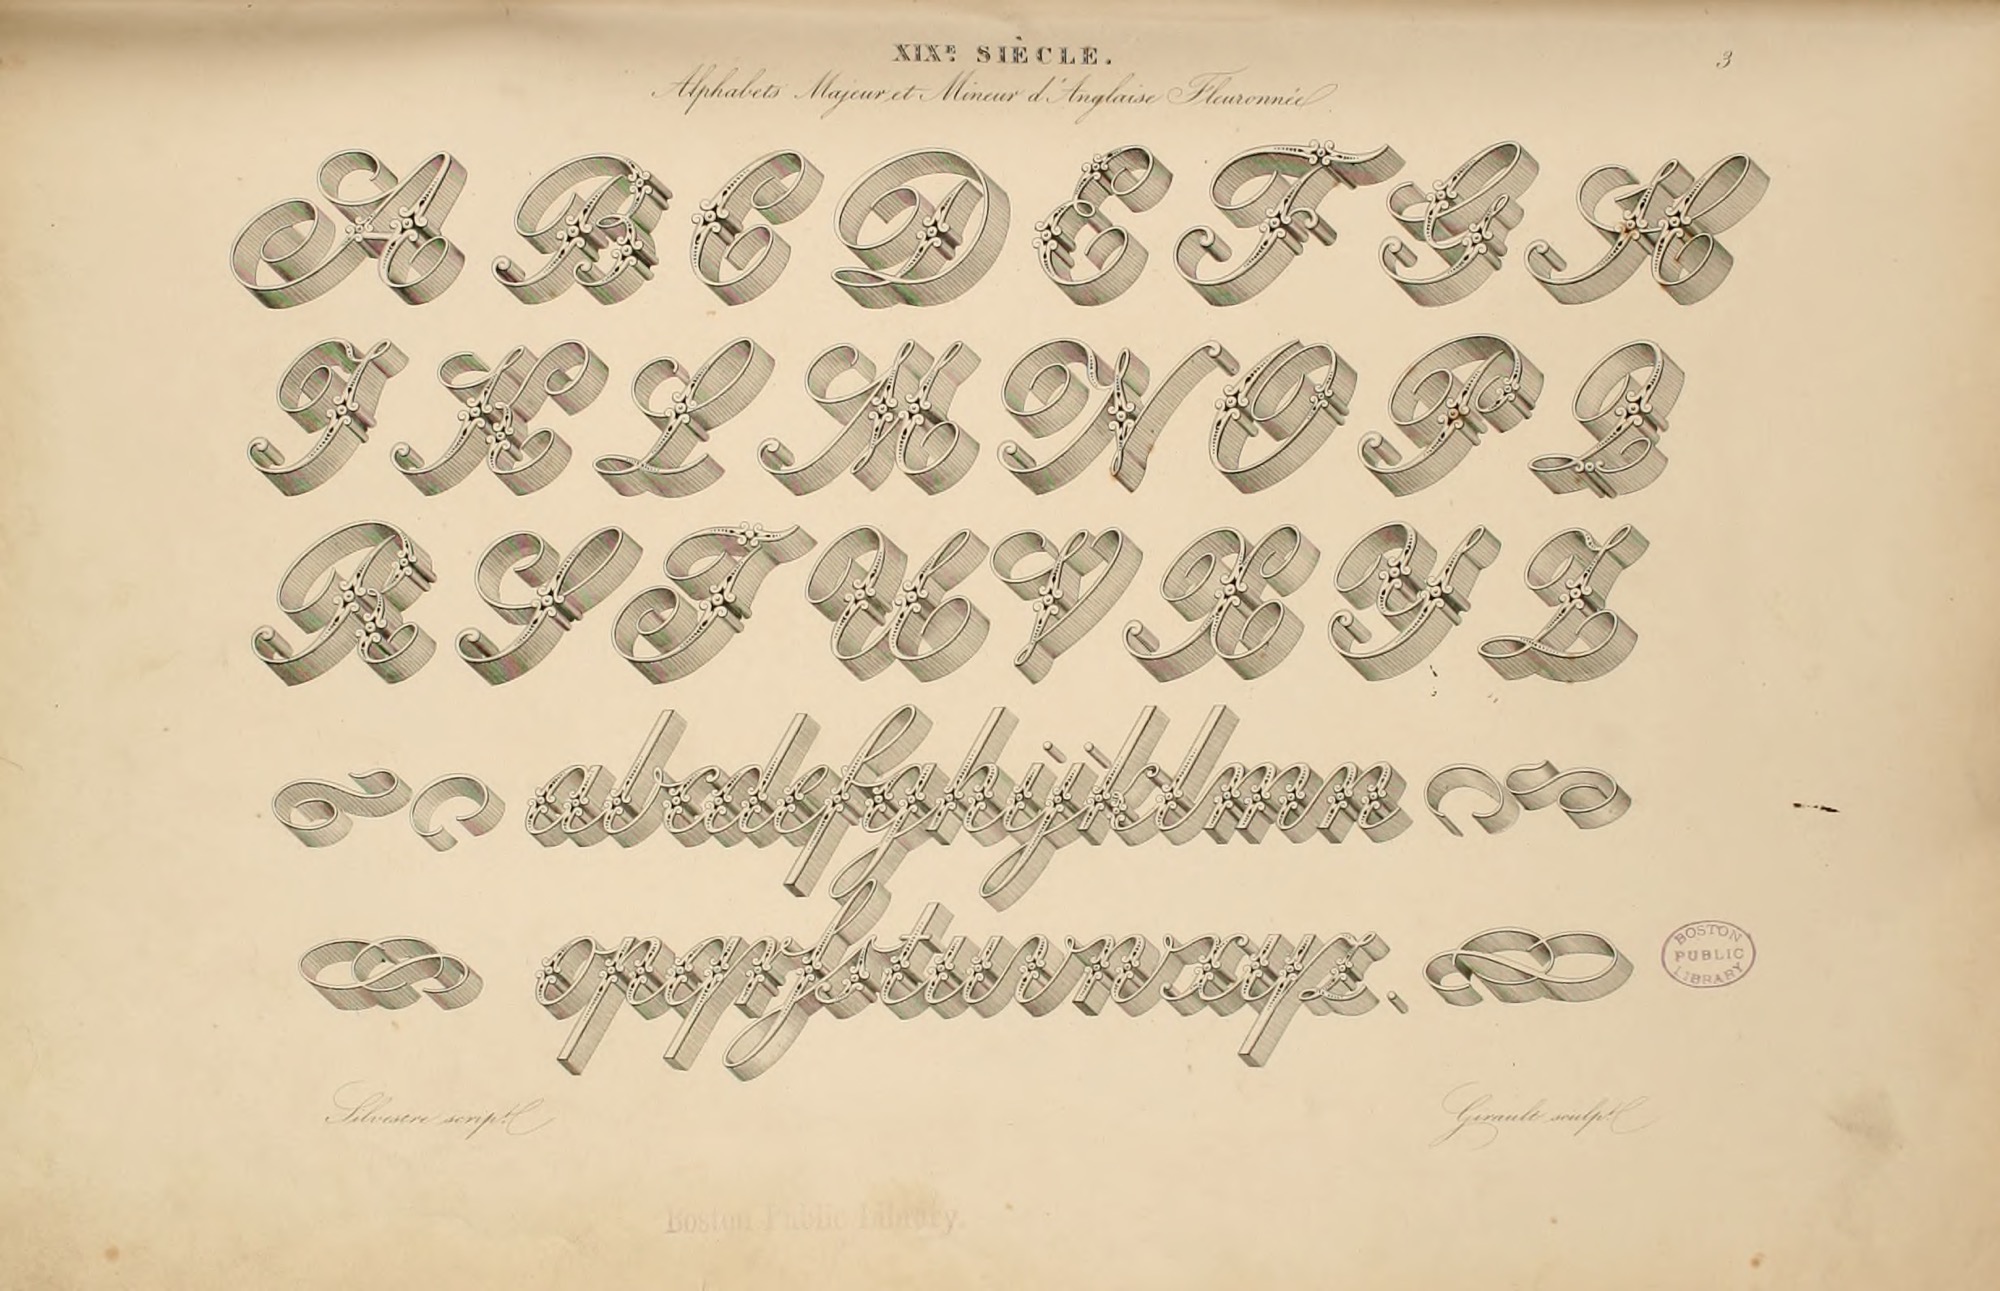 XIXᴱ. SIÈCLE.
3
Alphabets Majeur et Mineur d'Anglaise Fleuronnée
A B C D E F G H
I K L M N O P Q
R S T U V X Y Z
abcdefghijklmn
opqrſstuvwxyz.
BOSTON
PUBLIC
LIBRARY
Silvestre scripᵗ.
Girault sculpᵗ.
Boston Public Library.